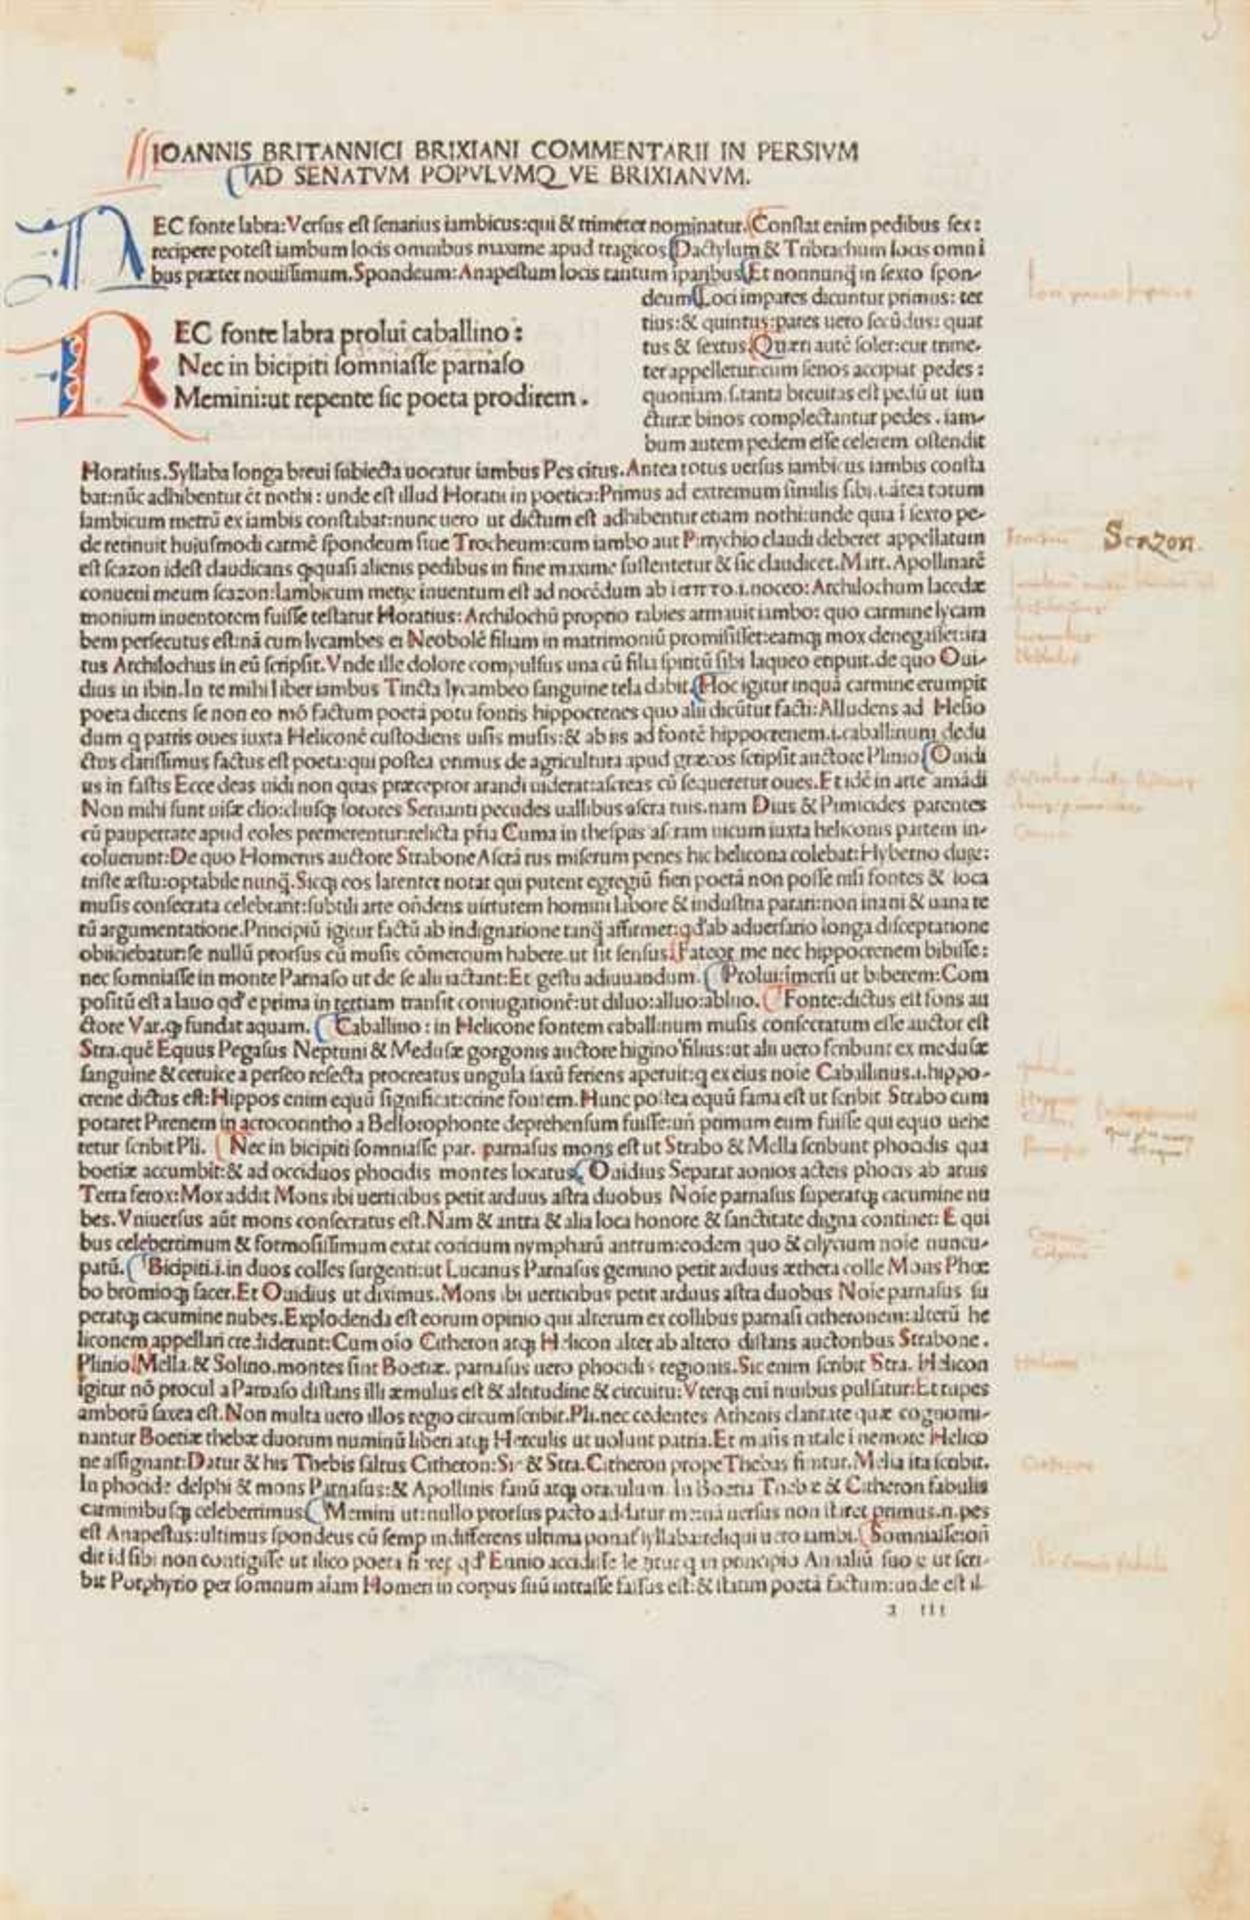 IOANNIS BRITANNICI BRIXIANI COMMENTARII IN PERSIVM
AD SENATVM POPVLVMQ VE BRIXIANVM.
NEC fonte labra: Versus est senarius iambicus: qui & trimeter nominatur. Constat enim pedibus sex:
recipere potest iambum locis omnibus maxime apud tragicos Dactylum & Tribrachum locis omni
bus præter nouissimum. Spondeum: Anapestum locis tantum iparibus Et nonnunq̃ in sexto spon-
deum Loci impares dicuntur primus: ter
tius: & quintus: pares uero secūdus: quar
tus & sextus. Quæri autē solet: cur trime-
ter appelletur: cum senos accipiat pedes:
quoniam .s. tanta breuitas est pedū ut iun
cturæ binos complectantur pedes . iam-
bum autem pedem esse celerem ostendit
NEC fonte labra prolui caballino:
Nec in bicipiti somniasse parnaso
Memini: ut repente sic poeta prodirem.
Horatius. Syllaba longa breui subiecta uocatur iambus Pes citus. Antea totus uersus iambicus iambis consta
bat: nūc adhibentur et nothi: unde est illud Horatii in poetica: Primus ad extremum similis sibi .i. ātea totum
Iambicum metrū ex iambis constabat: nunc uero ut dictum est adhibentur etiam nothi: unde quia i sexto pe-
de retinuit huiusmodi carmē spondeum siue Trocheum: cum iambo aut Pirrychio claudi deberet appellatum
est scazon idest claudicans q, quasi alienis pedibus in fine maxime sustentetur & sic claudicet. Mar. Apollinarē
conueni meum scazon: Iambicum inuentum est ad nocēdum ab .i. noceo: Archilochum lacedæ
monium inuentorem fuisse testatur Horatius: Archilochū proprio rabies armauit iambo: quo carmine lycam
bem persecutus est: nā cum lycambes ei Neobolē filiam in matrimoniū promisisset: eamq; mox denegasset: ira
tus Archilochus in eū scripsit. Vnde ille dolore compulsus una cū filia spiritū sibi laqueo eripuit. de quo Oui-
dius in ibin. In te mihi liber iambus Tincta lycambeo sanguine tela dabit. Hoc igitur inquā carmine erumpit
poeta dicens se non eo mō factum poetā potu fontis hippocrenes quo alii dicūtur facti: Alludens ad Hesio
dum q patris oues iuxta Heliconē custodiens uisis musis: & ab iis ad fontē hippocrenem .i. caballinum dedu
ctus clarissimus factus est poeta: qui postea primus de agricultura apud græcos scripsit auctore Plinio Ouidi
us in fastis Ecce deas uidi non quas præceptor arandi uiderat: ascreas cū sequeretur oues. Et idē in arte amādi
Non mihi sunt uisæ clio: cliusq; sorores Seruanti pecudes uallibus ascra tuis. nam Dius & Pimicides parentes
cū paupertate apud eoles premerentur: relicta pria Cuma in thespias ascram uicum iuxta heliconis partem in-
coluerunt: De quo Homerus auctore Strabone Ascrā rus miserum penes hic helicona colebat: Hyberno duge:
triste æstu: optabile nunq̃. Sicq; eos latenter notat qui putent egregiū fieri poetā non posse nisi fontes & loca
musis consecrata celebrent: subtili arte oñdens uirtutem homini labore & industria parari: non inani & uana re
rū argumentatione. Principiū igitur factū ab indignatione tanq̃ affirmet: qd ab aduersario longa disceptatione
obiiciebatur: se nullū prorsus cū musis cōmercium habere. ut sit sensus. Fateor me nec hippocrenem bibisse:
nec somniasse in monte Parnaso ut de se alii iactant: Et gestu adiuuandum. Prolui: imersi ut biberem: Com
positū est a lauo qd e prima in tertiam transit coniugationē: ut diluo: alluo: abluo. Fonte: dictus est fons au
ctore Var. q, fundat aquam. Caballino: in Helicone fontem caballinum musis consecratum esse auctor est
Stra. quē Equus Pegasus Neptuni & Medusæ gorgonis auctore higino filius: ut alii uero scribunt ex medusæ
sanguine & ceruice a perseo resecta procreatus ungula saxū feriens aperuit: q ex eius noie Caballinus .i. hippo-
crene dictus est: Hippos enim equū significat: crine fontem. Hunc postea equū fama est ut scribit Strabo cum
potaret Pirenem in acrocorintho a Bellorophonte deprehensum fuisse: uñ primum eum fuisse qui equo uehe
retur scribit Pli. Nec in bicipiti somniasse par. parnasus mons est ut Strabo & Mella scribunt phocidis qua
boetiæ accumbit: & ad occiduos phocidis montes locatus. Ouidius Separat aonios acteis phocis ab aruis
Terra ferox: Mox addit Mons ibi uerticibus petit arduus astra duobus Noie parnasus superatq; cacumine nu
bes. Vniuersus aūt mons consecratus est. Nam & antra & alia loca honore & sanctitate digna continet: E qui
bus celeberrimum & formosissimum extat coricium nympharū antrum: eodem quo & cilycium noie nuncu-
patū. Bicipiti .i. in duos colles surgenti: ut Lucanus Parnasus gemino petit arduus æthera colle Mons Phœ
bo bromioq; sacer. Et Ouidius ut diximus. Mons ibi uerticibus petit arduus astra duobus Noie parnasus su
peratq; cacumine nubes. Explodenda est eorum opinio qui alterum ex collibus parnasi citheronem: alterū he
liconem appellari crediderunt: Cum oīo Citheron atq; Helicon alter ab altero distans auctoribus Strabone.
Plinio. Mella. & Solino. montes sint Boetiæ. parnasus uero phocidis regionis. Sic enim scribit Stra. Helicon
igitur nō procul a Parnaso distans illi æmulus est & altitudine & circuitu: Vterq; eni niuibus pulsatur: Et rupes
amborū saxea est. Non multa uero illos regio circumscribit. Pli. nec cedentes Athenis claritate quæ cognomi-
nantur Boetiæ thebæ duorum numinū liberi atq; Herculis ut uolunt patria. Et musis natale i nemore Helico
ne assignant: Datur & his Thebis saltus Citheron: Sic & Stra. Citheron prope Thebas finitur. Melia ita scribit.
In phocide delphi & mons Parnasus: & Apollinis fanū atq; oraculum. In Boetia Thebæ & Citheron fabulis
carminibusq; celeberrimus. Memini ut: nullo prorsus pacto addatur uersus non staret primus .n. pes
est Anapestus: ultimus spondeus cū semp indifferens ultima ponat syllaba: reliqui uero iambi. Somniasse: oñ
dit id sibi non contigisse ut ilico poeta qd Ennio accidisse q in principio Annaliū suo ut scri-
bit Porphyrio per somnum aiam Homeri in corpus suū intrasse falsus est: & itatum poetā factum: unde est il-
a iii
Scazon.